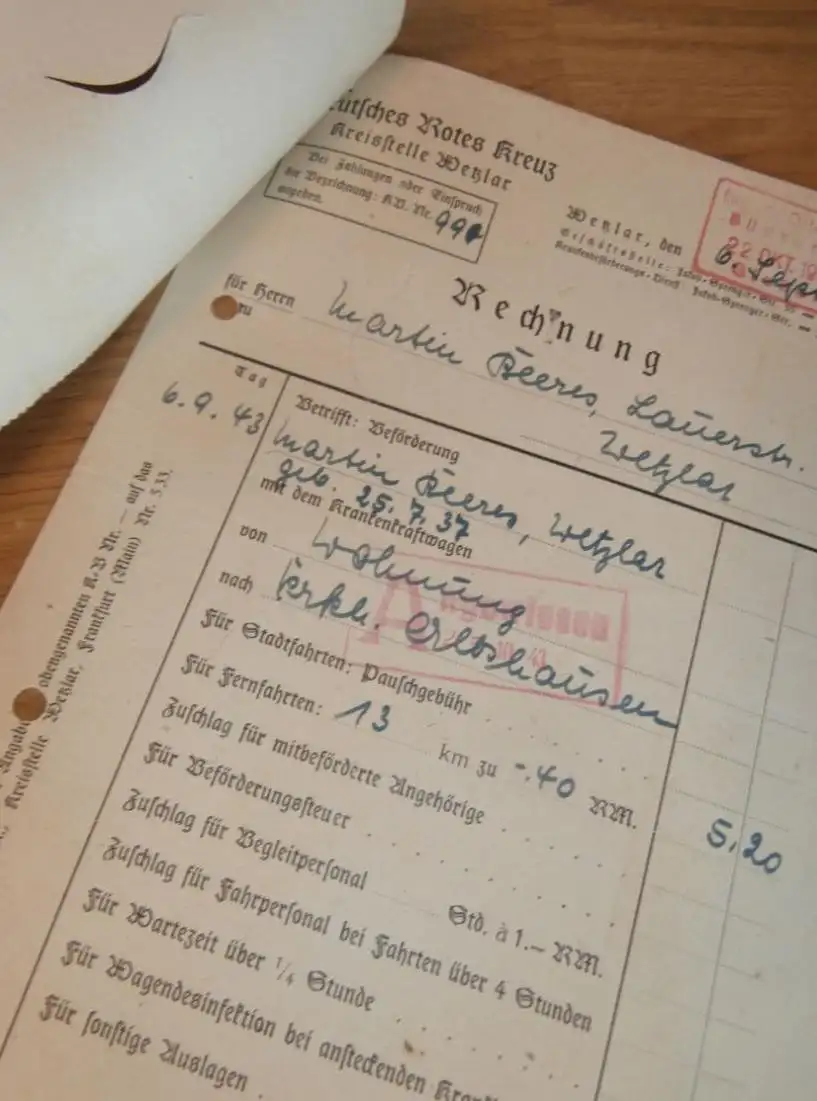 utsches Rotes Kreuz
Kreisstelle Wetzlar
Bei Zahlungen oder Einspruch
die Bezeichnung: K.B. Nr. 990
angeben.
Wetzlar, den 6. Sept
22 OKT. 19
Geschäftsstelle: Jakob-Sprenger-Str.
Krankenbeförderungs-Dienst Jakob-Sprenger-Str.
Rechnung
für Herrn Martin Beeres, Lauerstr.
Wetzlar
Tag
6.9.43
Betrifft: Beförderung
Martin Beeres, Wetzlar
geb. 25.7.37
mit dem Krankenkraftwagen
von Wohnung
nach Krkh.
Angewiesen
Für Stadtfahrten: Pauschgebühr
Für Fernfahrten: 13 km zu -.40 RM. 5,20
Zuschlag für mitbeförderte Angehörige
Für Beförderungssteuer
Zuschlag für Begleitpersonal Std. à 1.— RM.
Zuschlag für Fahrpersonal bei Fahrten über 4 Stunden
Für Wartezeit über 1/4 Stunde
Für Wagendesinfektion bei ansteckenden Kran
Für sonstige Auslagen
Angab obengenannten K.B Nr. — auf das
Kreisstelle Wetzlar, Frankfurt (Main) Nr. 533.